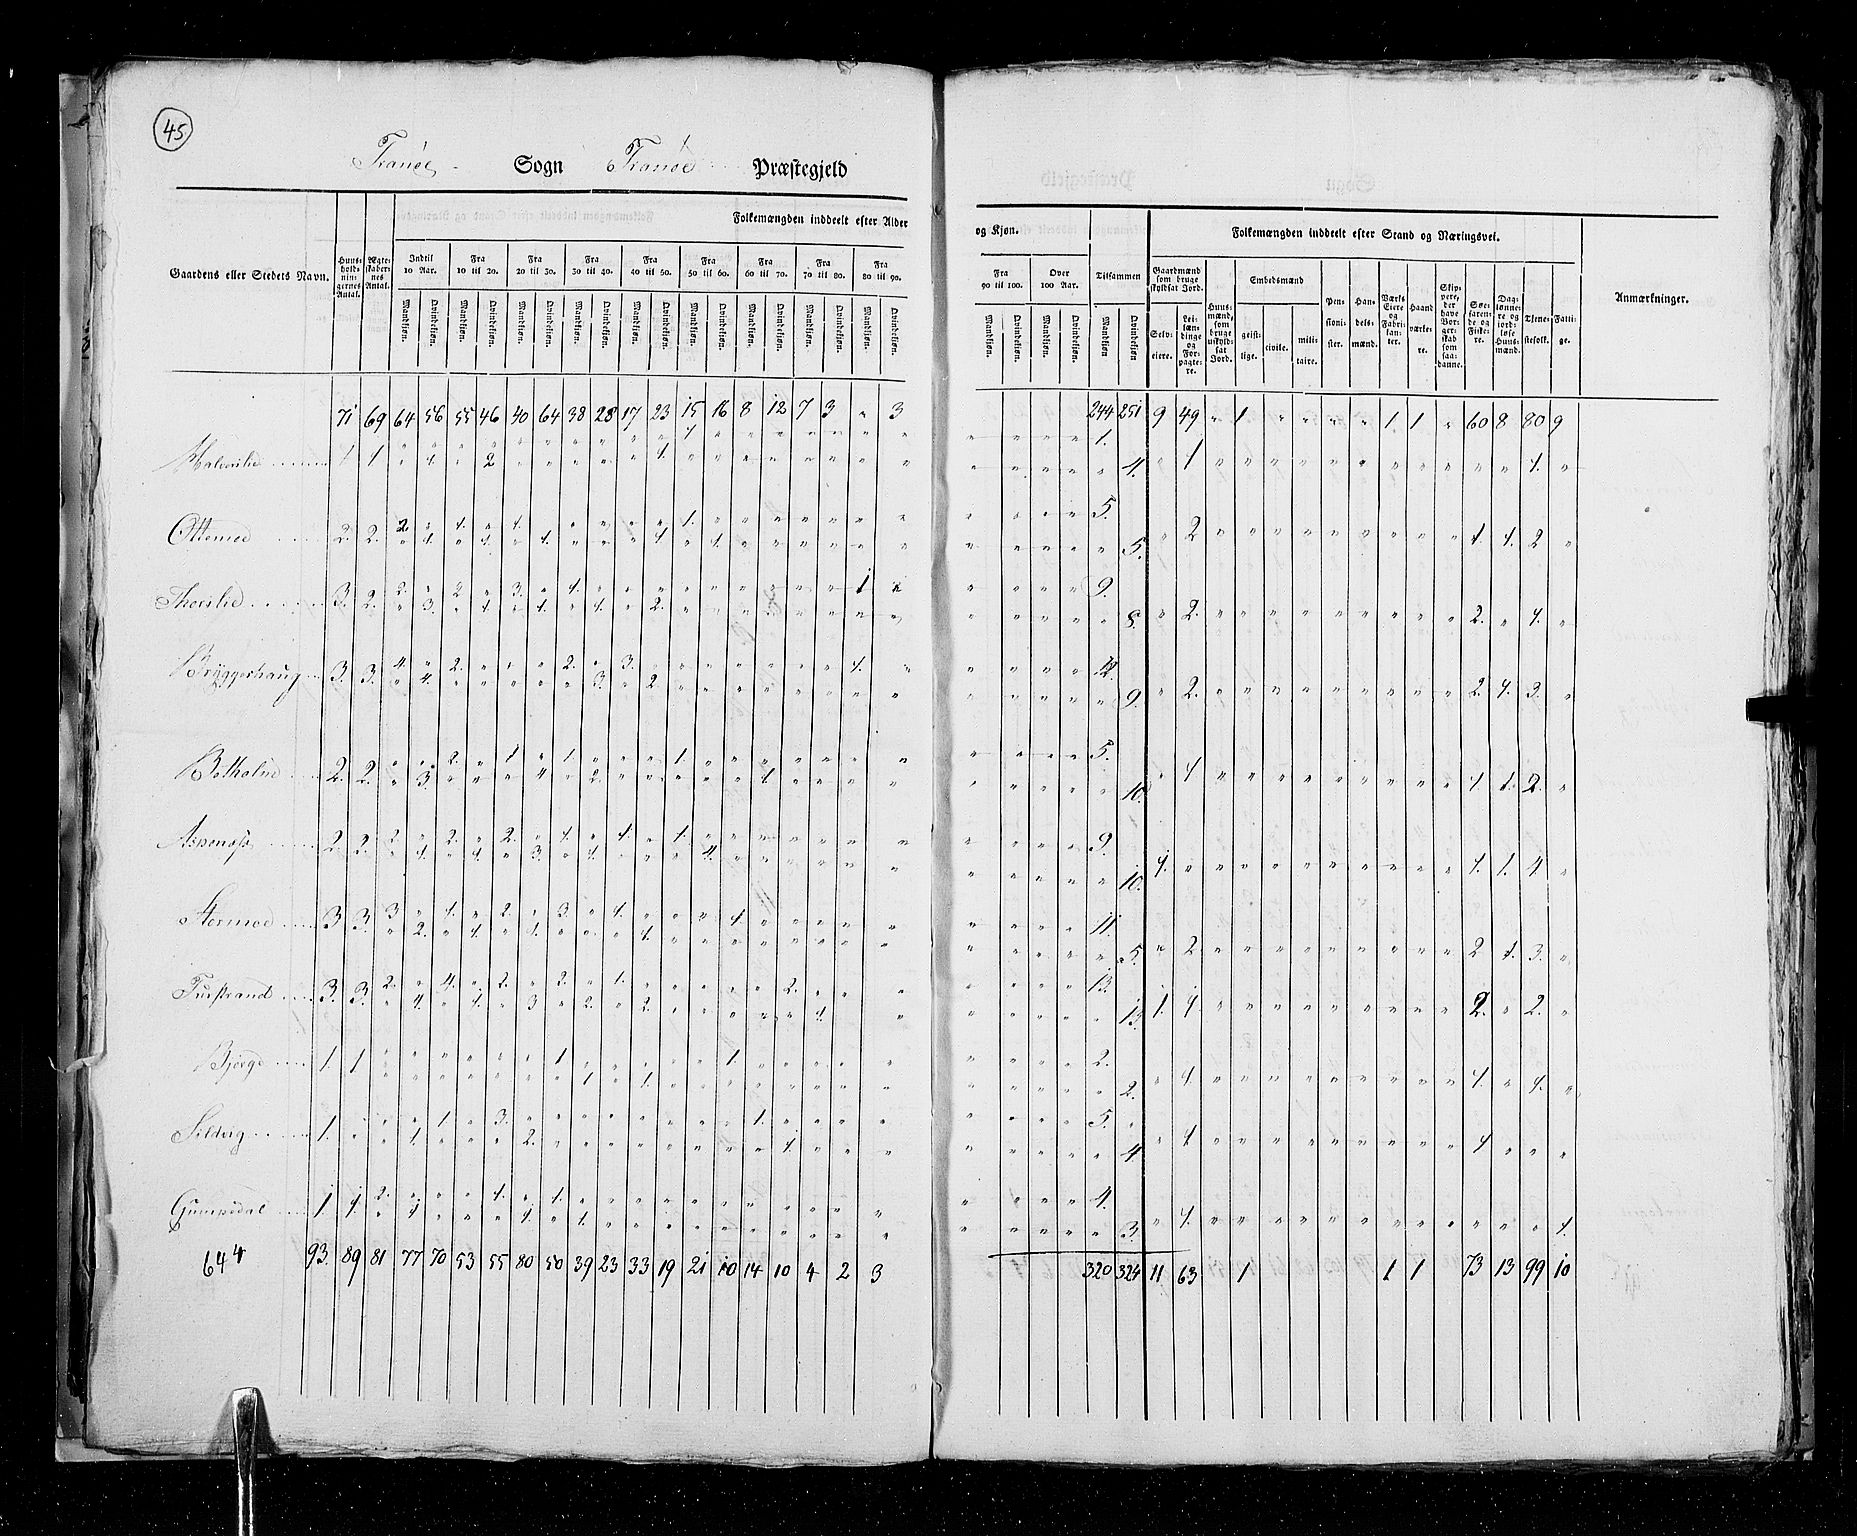 45
Tranöe Sogn Tranöe Præstegjeld
Gaardens eller Steders Navn. Huusholdningernes Antal. Ægteskabernes Antal. Folkemængden inddeelt efter Alder og Kjøn. Tilsammen Folkemængden inddeelt efter Stand og Næringsvei. Anmærkninger.
Indtil 10 Aar. Fra 10 til 20. Fra 20 til 30. Fra 30 til 40. Fra 40 til 50. Fra 50 til 60. Fra 60 til 70. Fra 70 til 80. Fra 80 til 90. Fra 90 til 100. Over 100 Aar.
Mandkjøn. Qvindekjøn. Mandkjøn. Qvindekjøn. Mandkjøn. Qvindekjøn. Mandkjøn. Qvindekjøn. Mandkjøn. Qvindekjøn. Mandkjøn. Qvindekjøn. Mandkjøn. Qvindekjøn. Mandkjøn. Qvindekjøn. Mandkjøn. Qvindekjøn. Mandkjøn. Qvindekjøn. Mandkjøn. Qvindekjøn. Mandkjøn Qvindekjøn
Gaardmænd som bruge skyldsat Jord. Selveiere. Leilændinge og Forpagtere. Huusmænd, som bruge uskyldsat Jord. Embedsmænd geistlige. civile. militaire. Pensionister. Handelsmænd. Værks Eiere og Fabrikanter. Haandværkere. Skippere, der have Borgerskab som saadanne. Søefarende og Fiskere. Daglønnere og jordløse Huusmænd. Tjenestefolk. Fattige.
71 69 64 56 55 46 40 64 38 28 17 23 15 16 8 12 7 3 " 3 244 251 9 49 " 1 " " " " 1 1 " 60 8 80 9
Halvorslie 1 1 1. 2 1. 1. 1. 4. 1 1.
Ottemoe 2. 2. 2. 1. 1. 1. 5.
1. 1. 1. 1. 1. 5. 2 1. 1. 2
Thorslie 3. 2. 2. 2. 3. 1. 1 9.
3. 1. 1. 1. 2. 8. 2. 2. 1.
Bryggerhaug 3. 3. 4. 2. 2. 3. 1. 12.
4. 3. 2. 9. 2. 2. 1. 3.
Botholne 2. 2. 2. 1 1. 1. 5.
3. 4 2. 1. 10. 1 1 1. 2.
Aspenæss 2. 2. 2. 2. 2. 1. 1. 1. 9.
1. 1. 3. 1. 4. 10. 1. 1. 1. 4
Stormoe 3. 3. 3 1. 2. 3. 1. 1. 11.
2. 1. 1. 1. 5. 2 2 1. 3.
Turstrand 3. 3. 2. 4. 2. 2. 1. 2. 13.
4. 1. 3 2. 2. 1. 13. 1. 1. 2. 2.
Bjorge 1. 1 1 1. 2.
1 1. 2. 1. 1. 1.
Sildvig 1. 1. 3. 1. 5.
1. 2. 1. 4. 1 1
Gumpedal 1. 1. 2. 1. 1. 4.
1 1. 1. 3. 1. 1.
644 93. 89 81 77 70 53 55 80 50 39 23 33 19 21 10 14 10 4 2 3 320 324 11 63 1 1 1 73 13 99 10